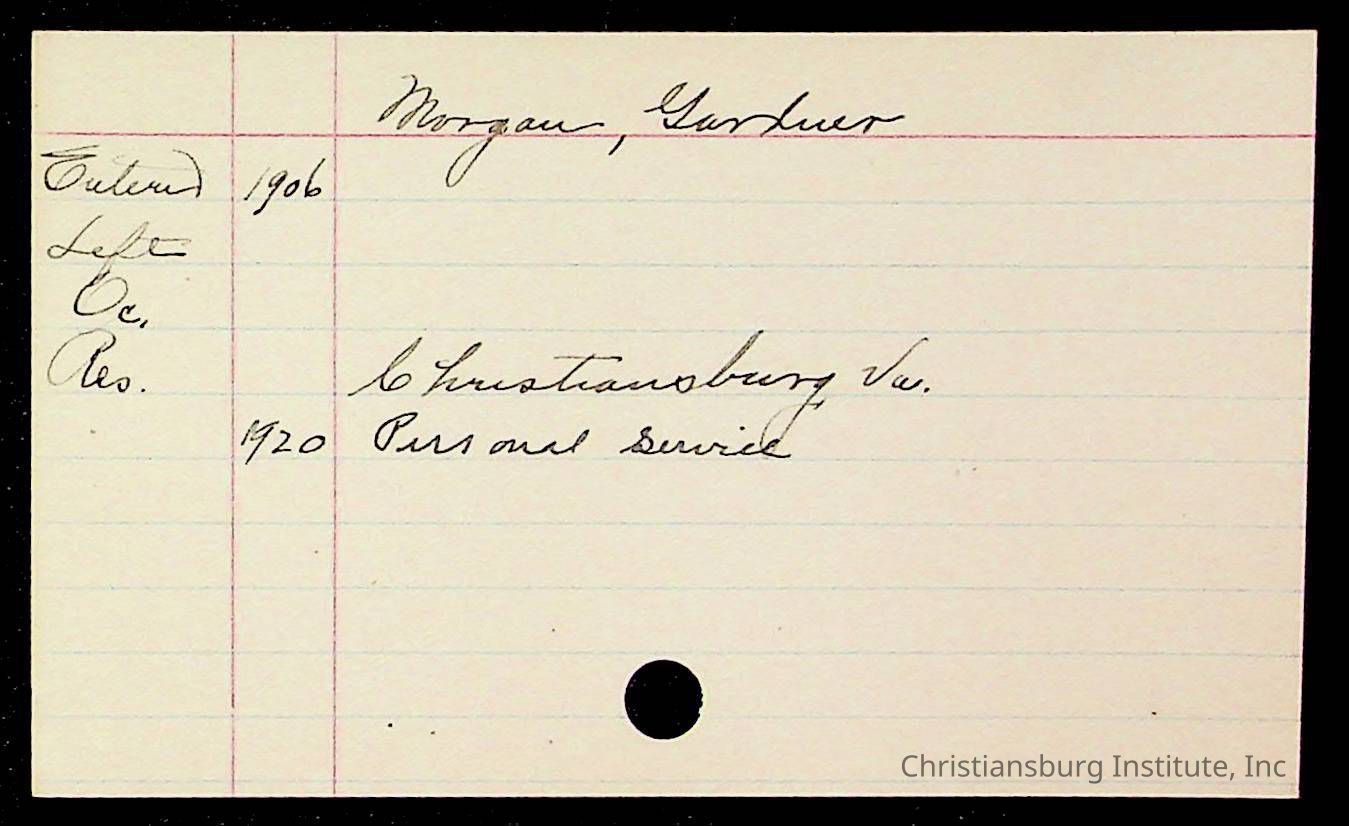 Morgan, Gardner
Entered 1906
Left
Oc.
Res. Christiansburg Va.
1920 Personal service
Christiansburg Institute, Inc